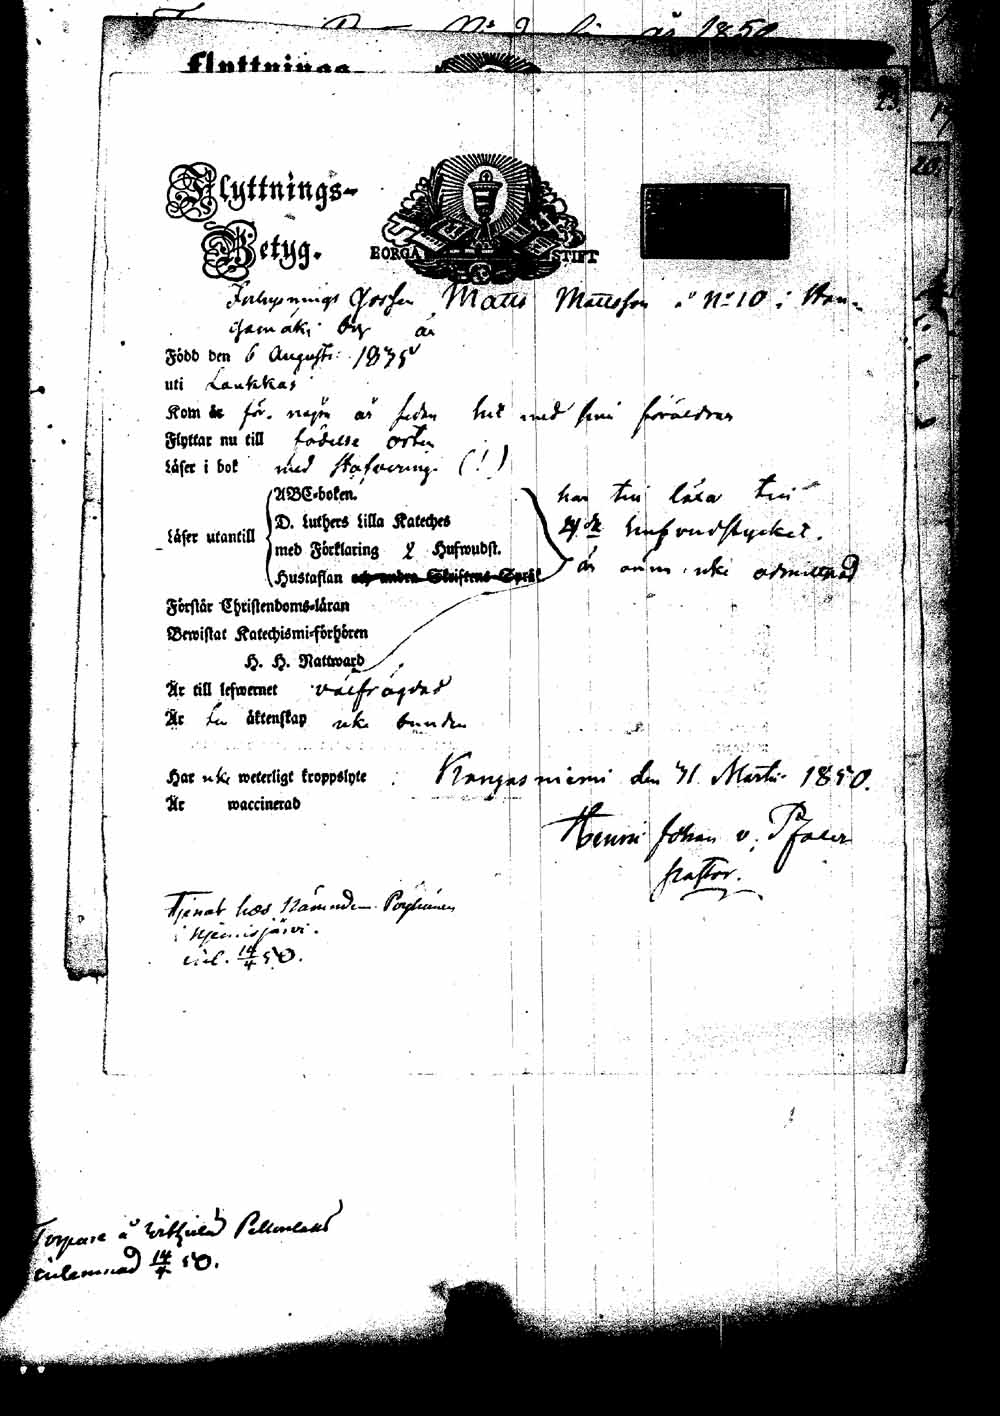 Flyttnings
1850
23.
Flyttnings-
Betyg.
BORGÅ STIFT
Gossen Matts Mattsson å No 10 i Han-
gamäki by är
Född den 6 Augusti 1835
uti Laukkas
Kom för några år sedan hit med sina föräldrar
Flyttar nu till födelse orten
Läser i bok med stafvering (!)
Läser utantill
ABC-boken.
D. Luthers Lilla Kateches
med Förklaring & Hufwudst.
Hustaflan och andra Skriftens Språk
har till
Hufvudstycket.
är ännu icke admitterad
Förstår Christendoms-läran
Bewistat Katechismi-förhören
H. H. Nattward
Är till lefwernet välfrägdad
Är till äktenskap icke bunden
Har icke weterligt kroppslyte
Kangasniemi den 31 Martii 1850.
Är waccinerad
Henric Johan v. Pfaler
pastor.
Tjenat hos Nämndem. Pöyhönen
i Niemisjärvi.
inl. 14/4 50.
Torpare å
inlemnad 14/4 50.